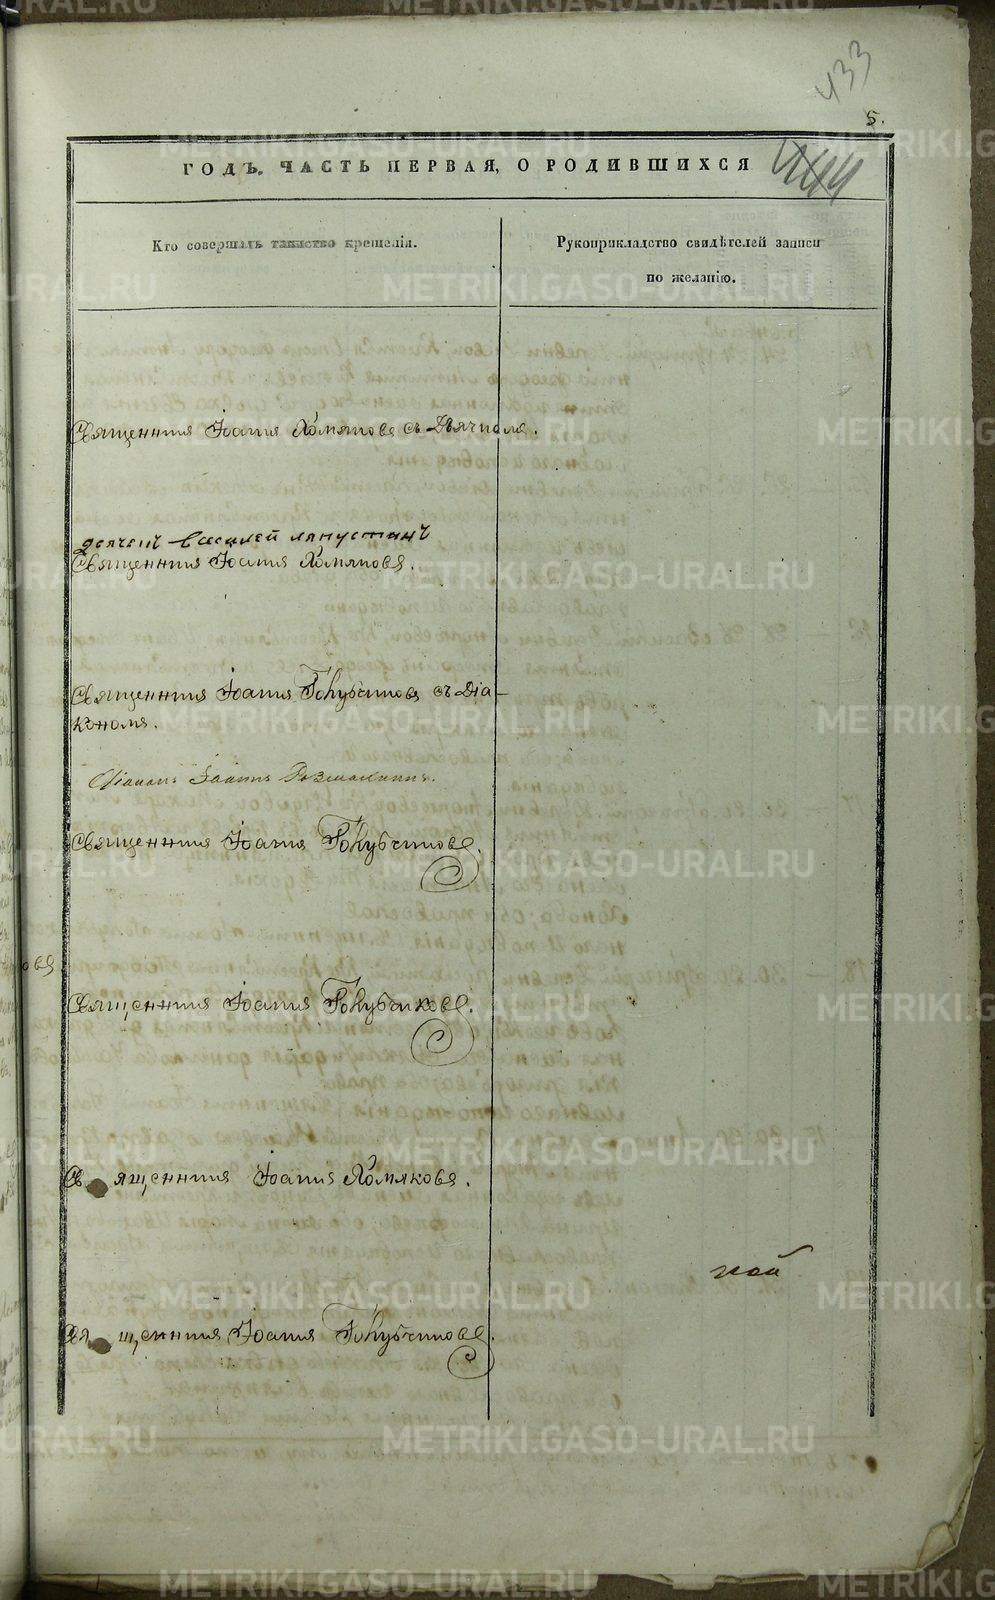 433
5.
ГОДЪ, ЧАСТЬ ПЕРВАЯ, О РОДИВШИХСЯ
Кто совершалъ таинство крещенія.
Рукоприкладство свидѣтелей записи
по желанію.
Священникъ Іоаннъ Хомяковъ съ Дьячкомъ.
дьячекъ Василей Лапустинъ
Священникъ Іоаннъ Хомяковъ.
Священникъ Іоаннъ Голубчиковъ съ Діа-
кономъ.
Діаконъ Іоаннъ
Священникъ Іоаннъ Голубчиковъ.
Священникъ Іоаннъ Голубчиковъ.
Священникъ Іоаннъ Хомяковъ.
кой
Священникъ Іоаннъ Голубчиковъ.
METRIKI.GASO-URAL.RU